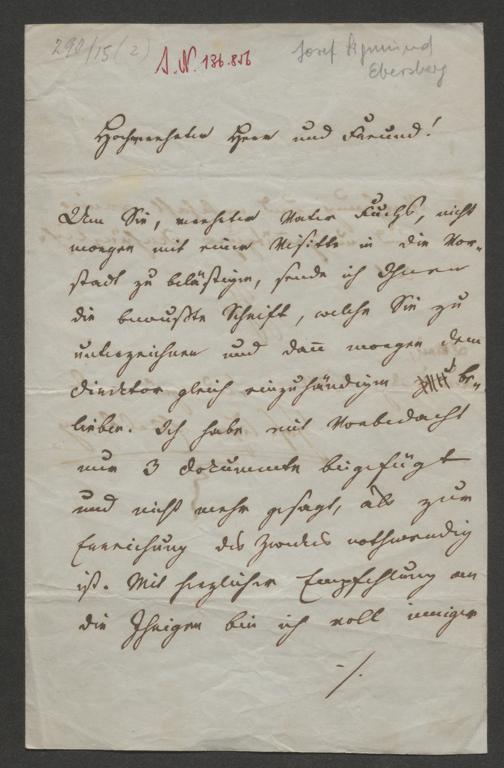 290/15(2)
S.N. 136.856
Josef Sigmund
Ebersberg
Hochverehrter Herr und Freund!
Um Sie, verehrter Vater Fuchs, nicht
morgen mit einer Visitte in die Vor-
stadt zu belästigen, sende ich Ihnen
die bewußte Schrift, welche Sie zu
unterzeichnen und dann morgen dem
Direktor gleich einzuhändigen be-
lieben. Ich habe mit Vorbedacht
nur 3 Dokumente beigefügt
und nicht mehr gesagt, als zur
Erreichung des Zweckes nothwendig
ist. Mit herzlicher Empfehlung an
die Ihrigen bin ich voll inniger
./.